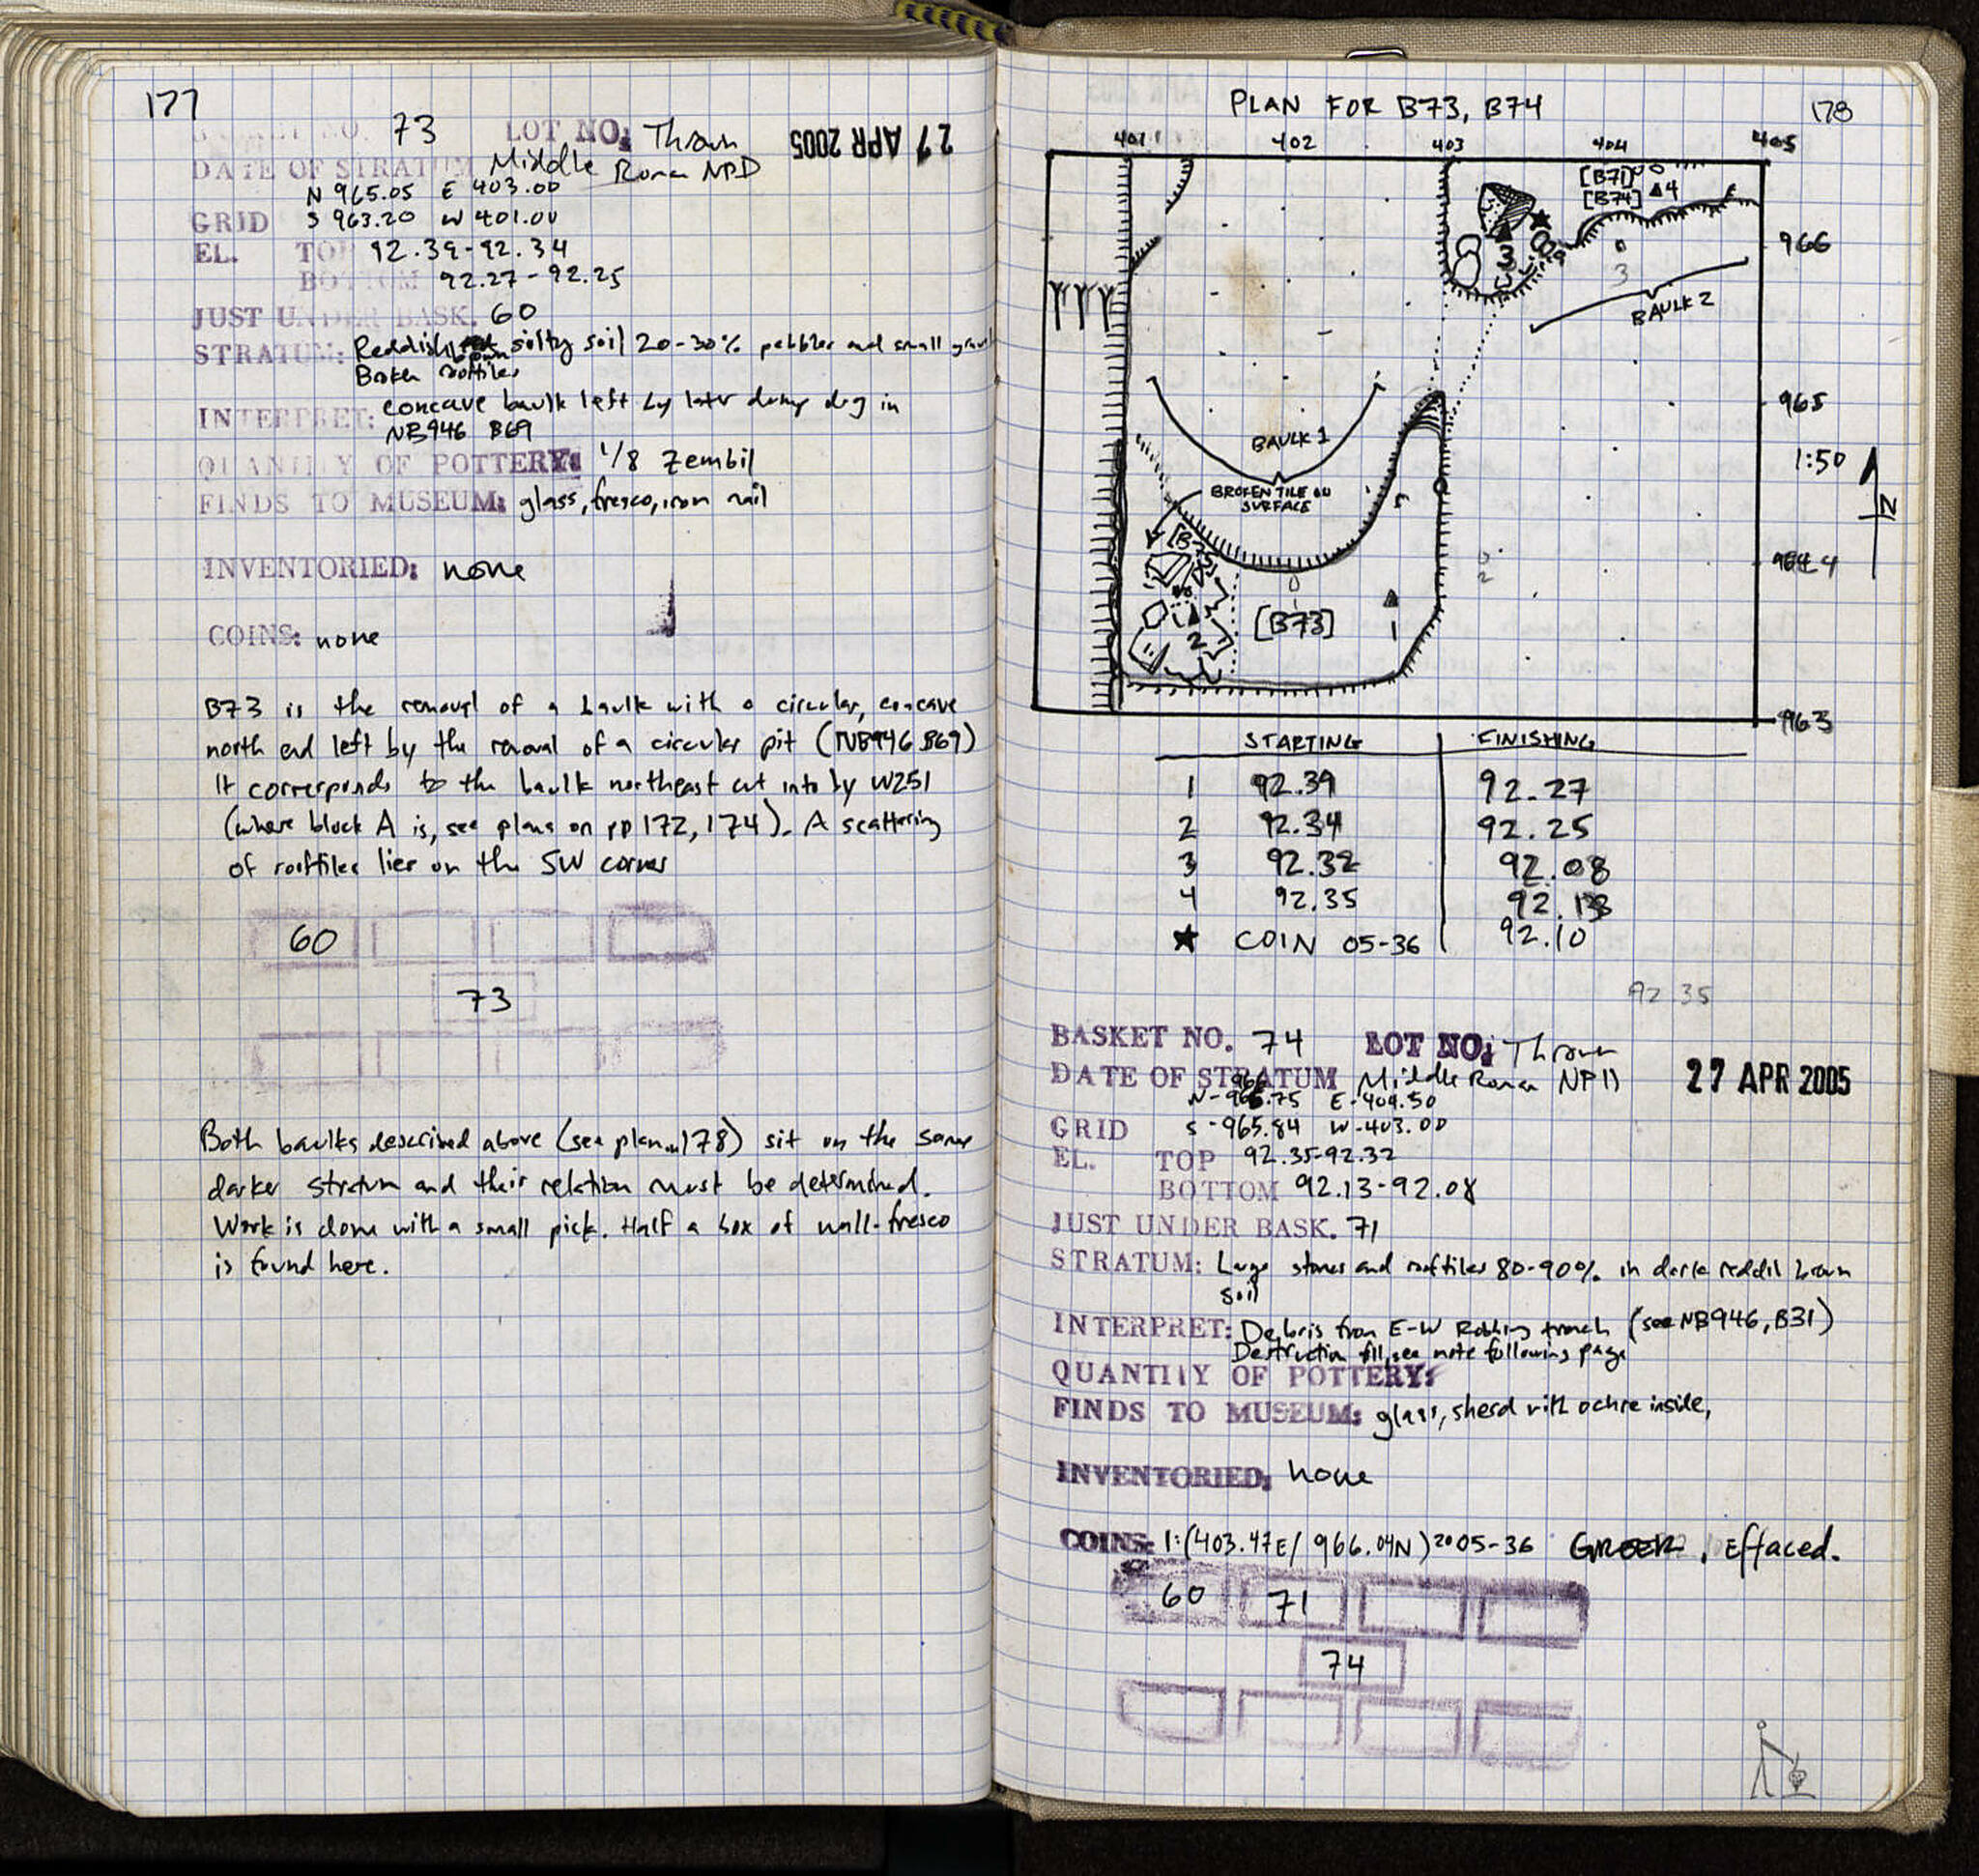 177
BASKET NO. 73 LOT NO: Thrown
27 APR 2005
DATE OF STRATUM Middle Roman NPD
N 965.05 E 403.00
GRID S 963.20 W 401.00
EL. TOP 92.39-92.34
BOTTOM 92.27-92.25
JUST UNDER BASK. 60
STRATUM: Reddish brown silty soil 20-30% pebbles and small gravel
Broken rooftiles
INTERPRET: concave baulk left by later dump dug in
NB946 B69
QUANTITY OF POTTERY: 1/8 Zembil
FINDS TO MUSEUM: glass, fresco, iron nail
INVENTORIED: none
COINS: none
B73 is the removal of a baulk with a circular, concave
north end left by the removal of a circular pit (NB946 B69)
It corresponds to the baulk northeast cut into by W251
(where block A is, see plans on pp 172, 174). A scattering
of rooftiles lies on the SW corner
60
73
Both baulks described above (see plan on 178) sit on the same
darker stratum and their relation must be determined.
Work is done with a small pick. Half a box of wall-fresco
is found here.
PLAN FOR B73, B74
178
401 402 403 404 405
[B71]
[B74] 4
966
3
3
BAULK 2
965
BAULK 1
1:50
N
BROKEN TILE ON
SURFACE
[B75]
964
2
[B73]
1
2
963
STARTING FINISHING
1 92.39 92.27
2 92.34 92.25
3 92.32 92.08
4 92.35 92.13
★ COIN 05-36 92.10
92.35
BASKET NO. 74 LOT NO: Thrown
DATE OF STRATUM Middle Roman NPD
27 APR 2005
N-966.75 E-404.50
GRID S-965.84 W-403.00
EL. TOP 92.35-92.32
BOTTOM 92.13-92.08
JUST UNDER BASK. 71
STRATUM: Large stones and rooftiles 80-90% in dark reddish brown
soil
INTERPRET: Debris from E-W Robbing trench (see NB946, B31)
Destruction fill, see note following page
QUANTITY OF POTTERY:
FINDS TO MUSEUM: glass, sherd with ochre inside,
INVENTORIED: none
COINS: 1: (403.47E/ 966.04N) 2005-36 GREEK, Effaced.
60 71
74